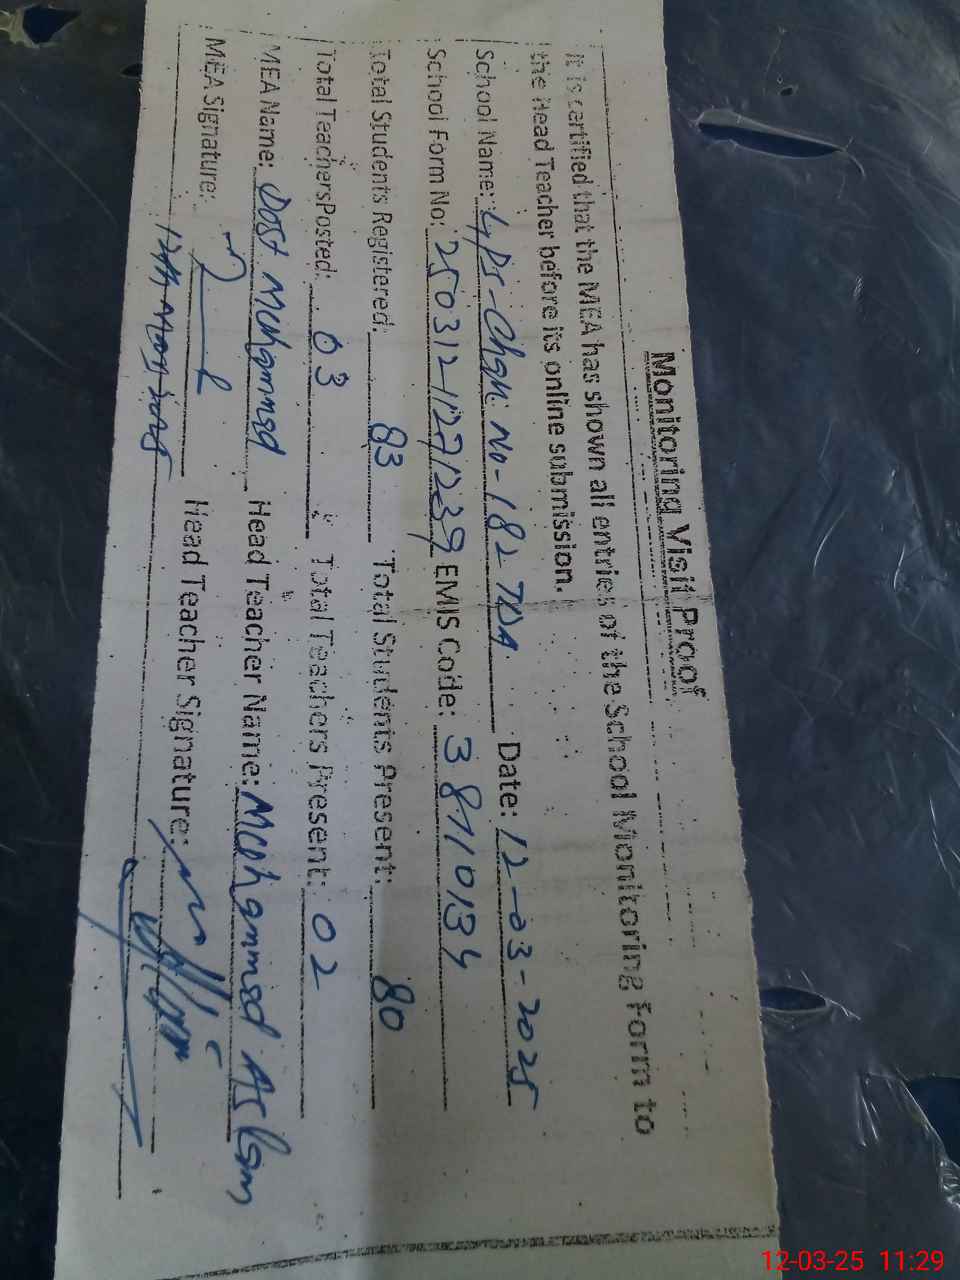 Monitoring Visit Proof
It is certified that the MEA has shown all entries of the School Monitoring Form to
the Head Teacher before its online submission.
School Name: No-182 TDA Date: 12-03-2025
School Form No: 250312112771239 EMIS Code: 38710134
Total Students Registered: 83 Total Students Present: 80
Total TeachersPosted: 03 Total Teachers Present: 02
MEA Name: Dost Mohammad Head Teacher Name: Mohammad Aslam
MEA Signature: Head Teacher Signature:
12-03-25 11:29